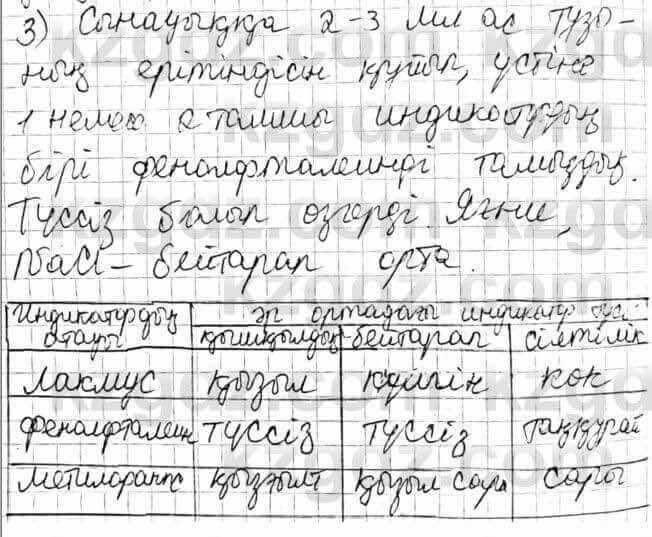 3) Сынауыққа 2-3 мл ас тұзы-
ның ерітіндісін құйып, үстіне
1 немесе 2 тамшы индикатордың
бірі фенолфталеинді тамыздық.
Түссіз болып өзгерді. Яғни,
NaCl – бейтарап орта.
Индикатордың атауы | әр ортадағы индикатор түсі
қышқылдық | бейтарап | сілтілік
Лакмус | қызыл | күлгін | көк
фенолфталеин | түссіз | түссіз | таңқурай
метилоранж | қызғылт | қызғыл сары | сары
kzgdz.com